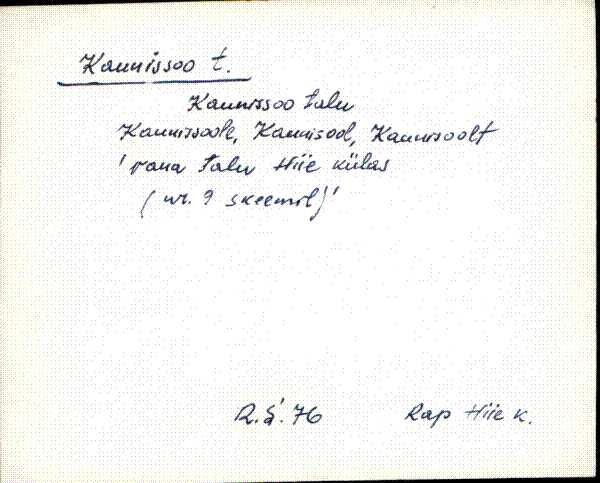 Kannissoo t.
Kannissoo talu
Kannissoole, Kannisool, Kannisoolt
'vana talu Hiie külas
(nr. 9 skeemil)'
R.Š. 76 Rap Hiie k.